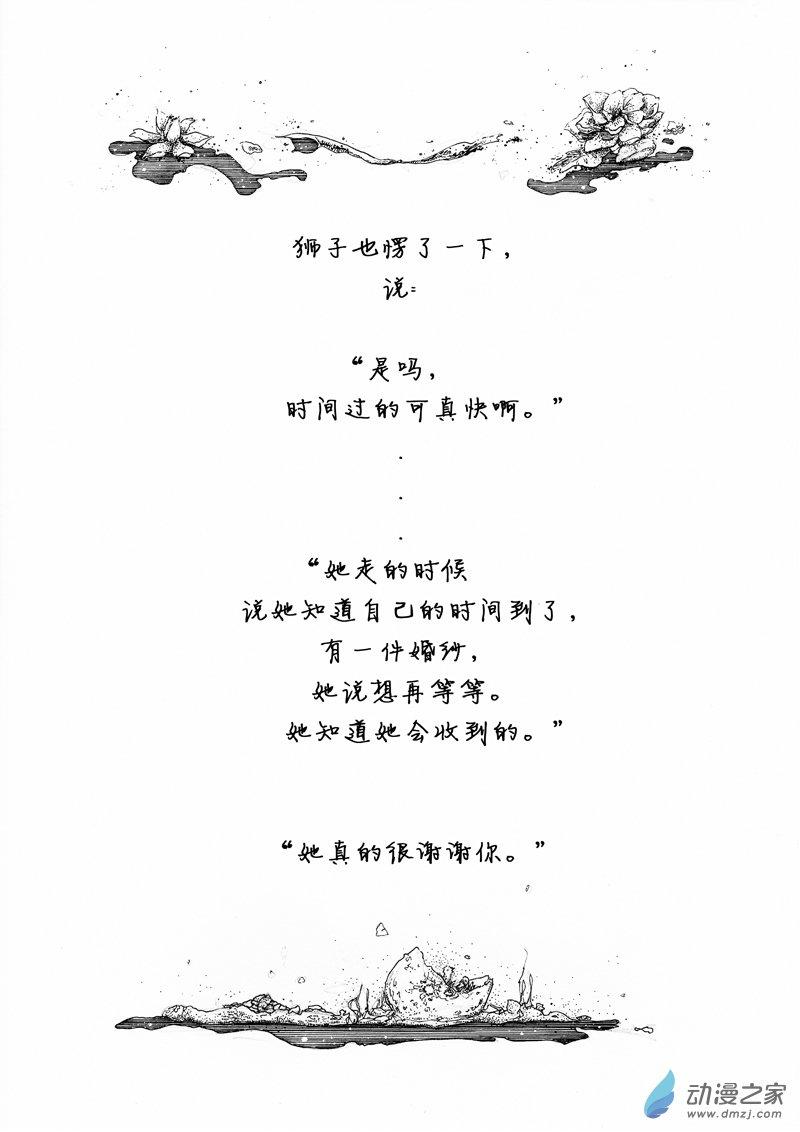 狮子也愣了一下，
说：
“是吗，
时间过的可真快啊。”
.
.
.
“她走的时候
说她知道自己的时间到了，
有一件婚纱，
她说想再等等。
她知道她会收到的。”
“她真的很谢谢你。”
动漫之家
www.dmzj.com